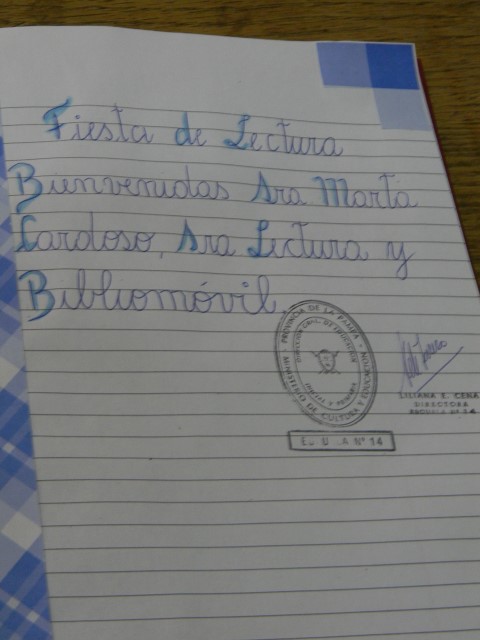 Fiesta de Lectura
Bienvenidas Sra Marta
Cardoso, Sra Lectura y
Bibliomóvil.
PROVINCIA DE LA PAMPA - MINISTERIO DE CULTURA Y EDUCACION
INICIAL Y PRIMARIA
Nº 14
LILIANA E. CENA
DIRECTORA
ESCUELA Nº 14